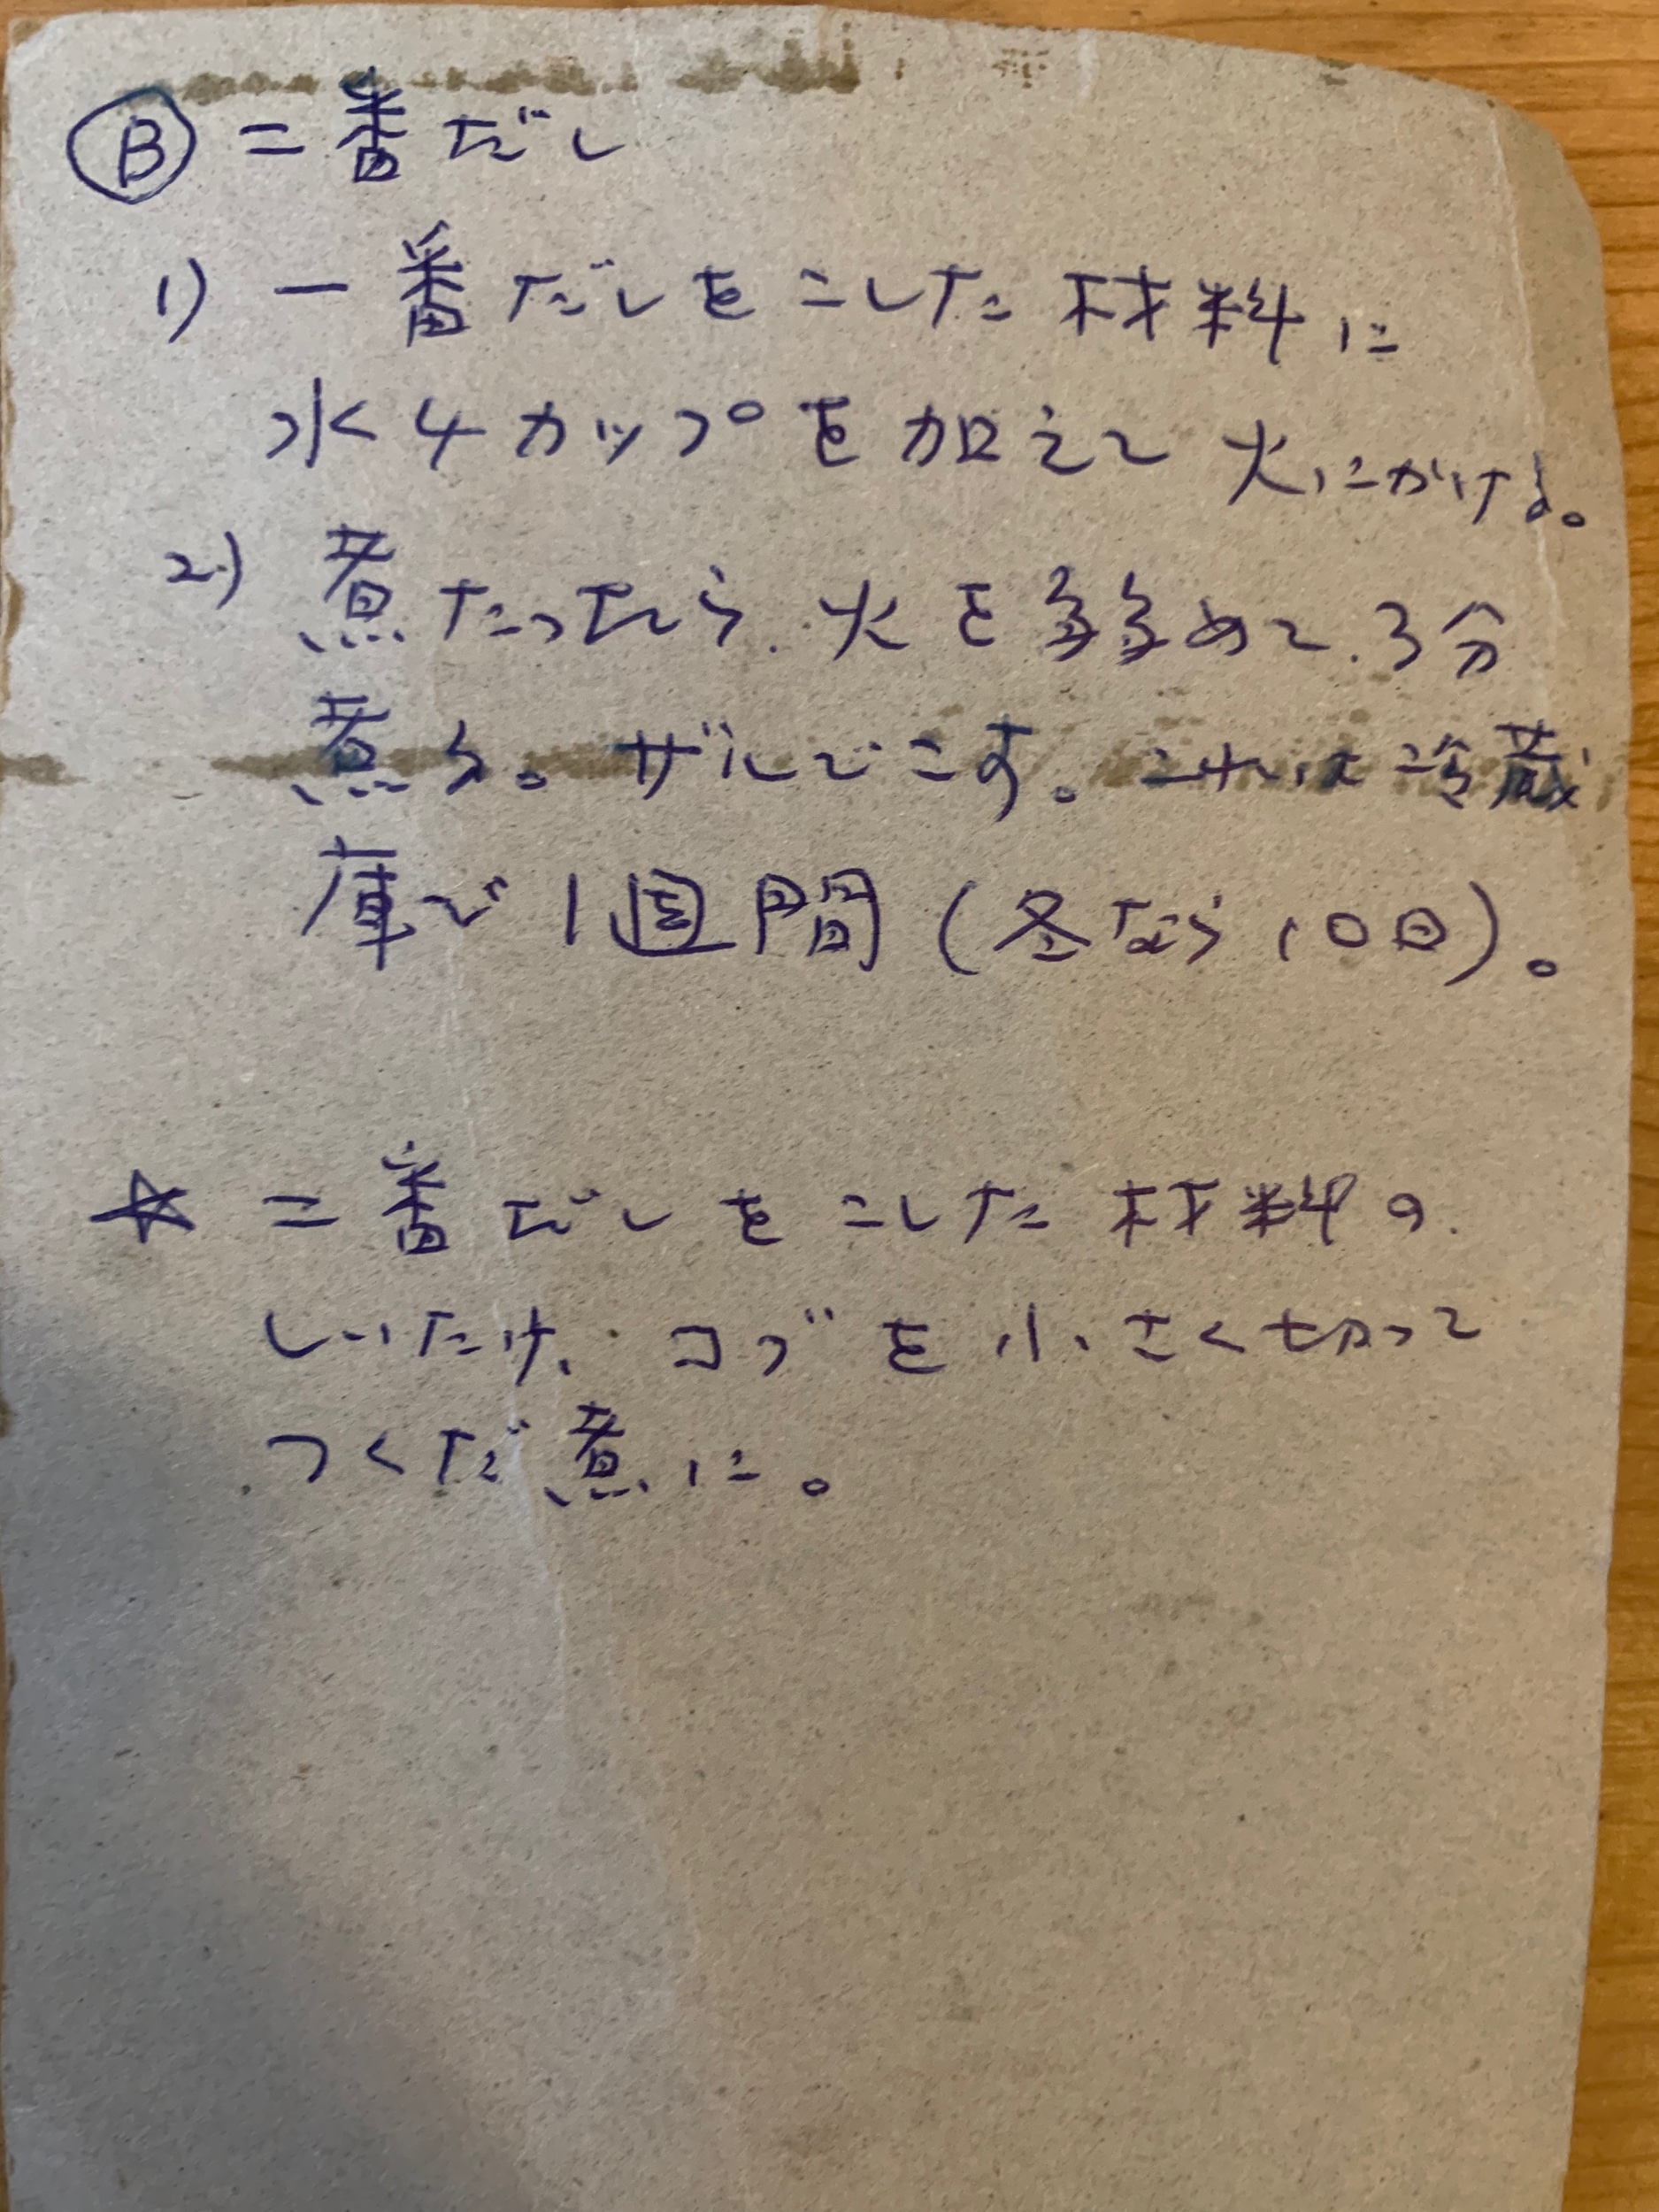 Ⓑ 二番だし
1) 一番だしをこした材料に
水4カップを加えて火にかける。
2) 煮たったら、火を弱めて、3分
煮る。ザルでこす。これは冷蔵
庫で1週間(冬なら10日)。
☆ 二番だしをこした材料の
しいたけ、コブを小さく切って
つくだ煮に。